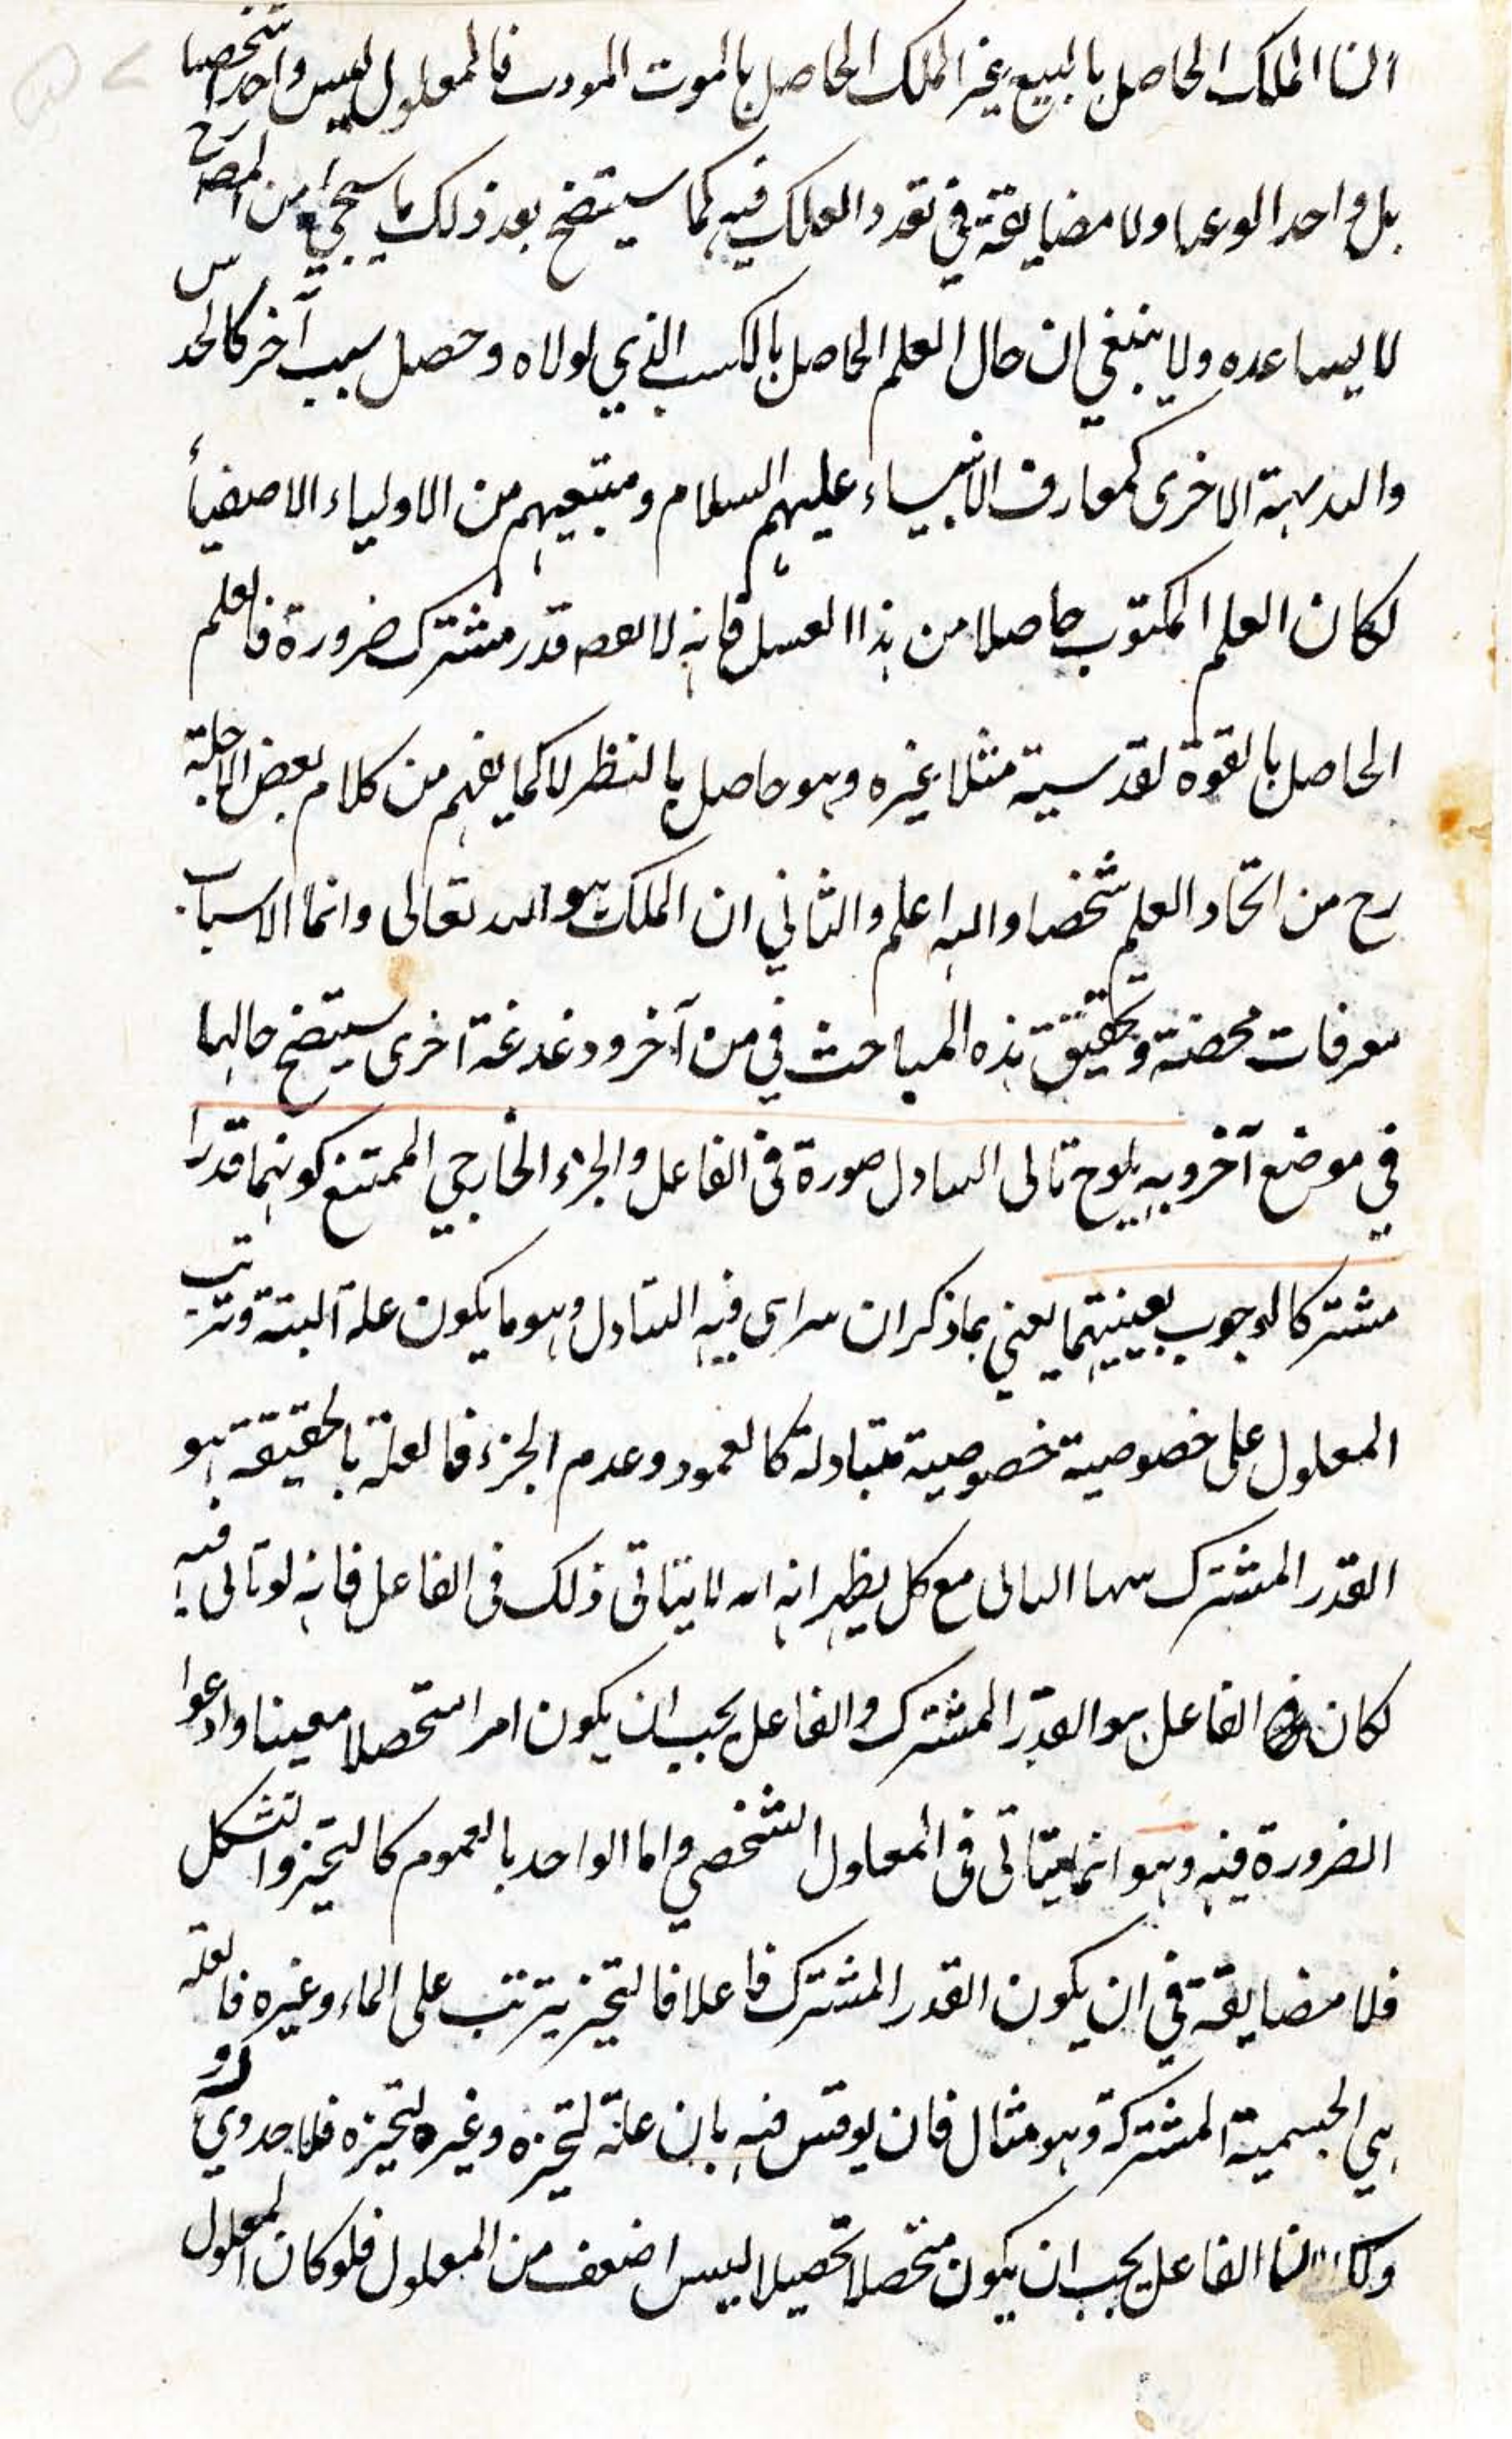 الملك الحاصل بالبيع غير الملك الحاصل بالموت المورث فالمعلول ليس واحدا شخصيا
بل واحدا ولا مضايقة في تعدد العلل فيه كما سيتضح بعد ذلك ما سيجيئ من المصنف رح
لا يساعده ولا ينبغي ان حال العلم الحاصل بالكسب الذي لولاه وحصل بسبب آخر كالحدس
والبديهة الاخرى كمعارف الانبياء عليهم السلام ومتبعيهم من الاولياء الاصفياء
لكان العلم المكتوب حاصلا من هذا فانه قدر مشترك ضرورة فالعلم
الحاصل بالقوة القدسية مثلا غيره وهو حاصل بالنظر لا كما يفهم من كلام بعض الاجلة
رح من اتحاد العلم شخصا والله اعلم والثاني ان الملك هو الله تعالى وانما الاسباب
معرفات محضة وتحقيق هذه المباحث في من آخر ودغدغة اخرى سيتضح حالها
في موضع آخر وبه يلوح تالى التبادل صورة في الفاعل والجزء الخارجي الممتنع كونهما قدرا
مشتركا لوجوب بعينيتهما يعني بما ذكر ان فيه التبادل وهو ما يكون علة البتة وترتب
المعلول على خصوصية خصوصية متبادلة كالعمود وعدم الجزء فالعلة بالحقيقة هو
القدر المشترك مع كل يظهر انه لا يتاتى ذلك في الفاعل فانه لو تاتى فيه
لكان الفاعل هو القدر المشترك والفاعل يجب ان يكون امرا متحصلا معينا وادعوا
الضرورة فيه وهو انما يتاتى في المعلول الشخصي واما الواحد بالعموم كالتحيز والتشكل
فلا مضايقة في ان يكون القدر المشترك فاعلا فالتحيز يترتب على الماء وغيره فالعلة
هي الجسمية المشتركة وهو مثال فان نوقش فيه بان علة تحيزه وغيره لتحيزه فلا جدوى
الفاعل يجب ان يكون متحصلا تحصيلا ليس اضعف من المعلول فلو كان المعلول